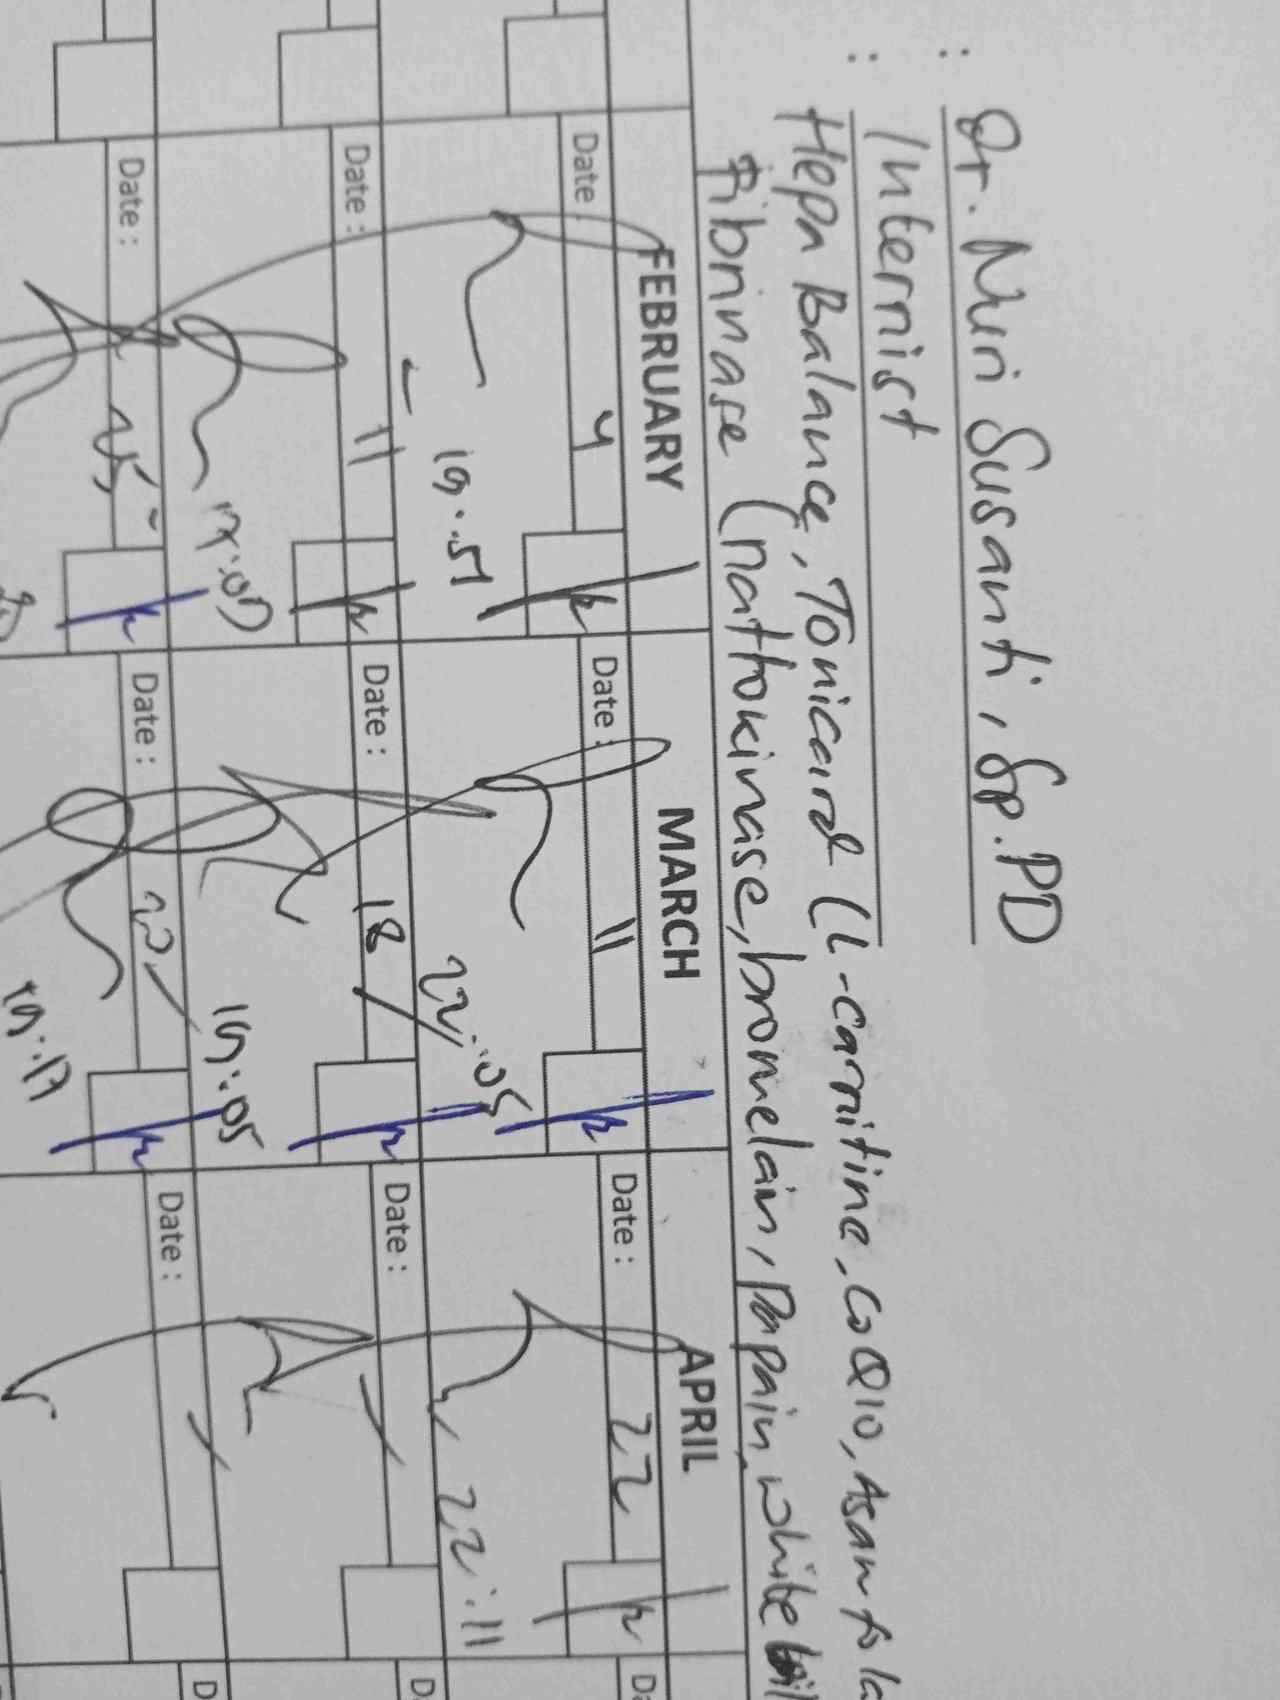 : Dr. Nuri Susanti, Sp.PD
: Internist
Hepa Balance, Tonicard (L-carnitine, CoQ10, Asam fola
Fibrinase (nattokinase, bromelain, papain, white
FEBRUARY MARCH APRIL
Date : 4 Date : 11 Date : 22 Da
19.51 22:05 22.11
Date : 11 Date : 18 Date : D
19.05
Date : 25 Date : Date : D
19.17